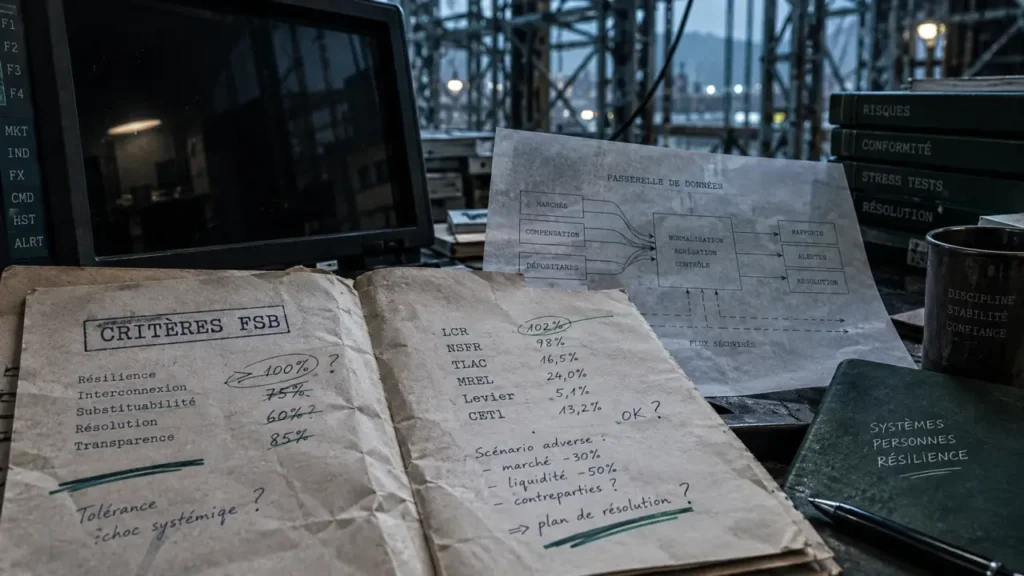 F1
F2
F3
F4
MKT
IND
FX
CMD
HST
ALRT
CRITÈRES FSB
Résilience
Interconnexion
Substituabilité
Résolution
Transparence
100% ?
75%
60%?
85%
Tolérance
choc systémique ?
LCR 102%
NSFR 98%
TLAC 16,5%
MREL 24,0%
Levier 5,1%
CET1 13,2%
OK ?
Scénario adverse :
- marché -30%
- liquidité -50%
- contreparties ?
⇒ plan de résolution ?
PASSERELLE DE DONNÉES
MARCHÉS
COMPENSATION
DÉPOSITARES
NORMALISATION
AGRÉGATION
CONTRÔLE
RAPPORTS
ALERTES
RÉSOLUTION
FLUX SÉCURISÉS
RISQUES
CONFORMITÉ
STRESS TESTS
RÉSOLUTION
DISCIPLINE
STABILITÉ
CONFIANCE
SYSTÈMES
PERSONNES
RÉSILIENCE